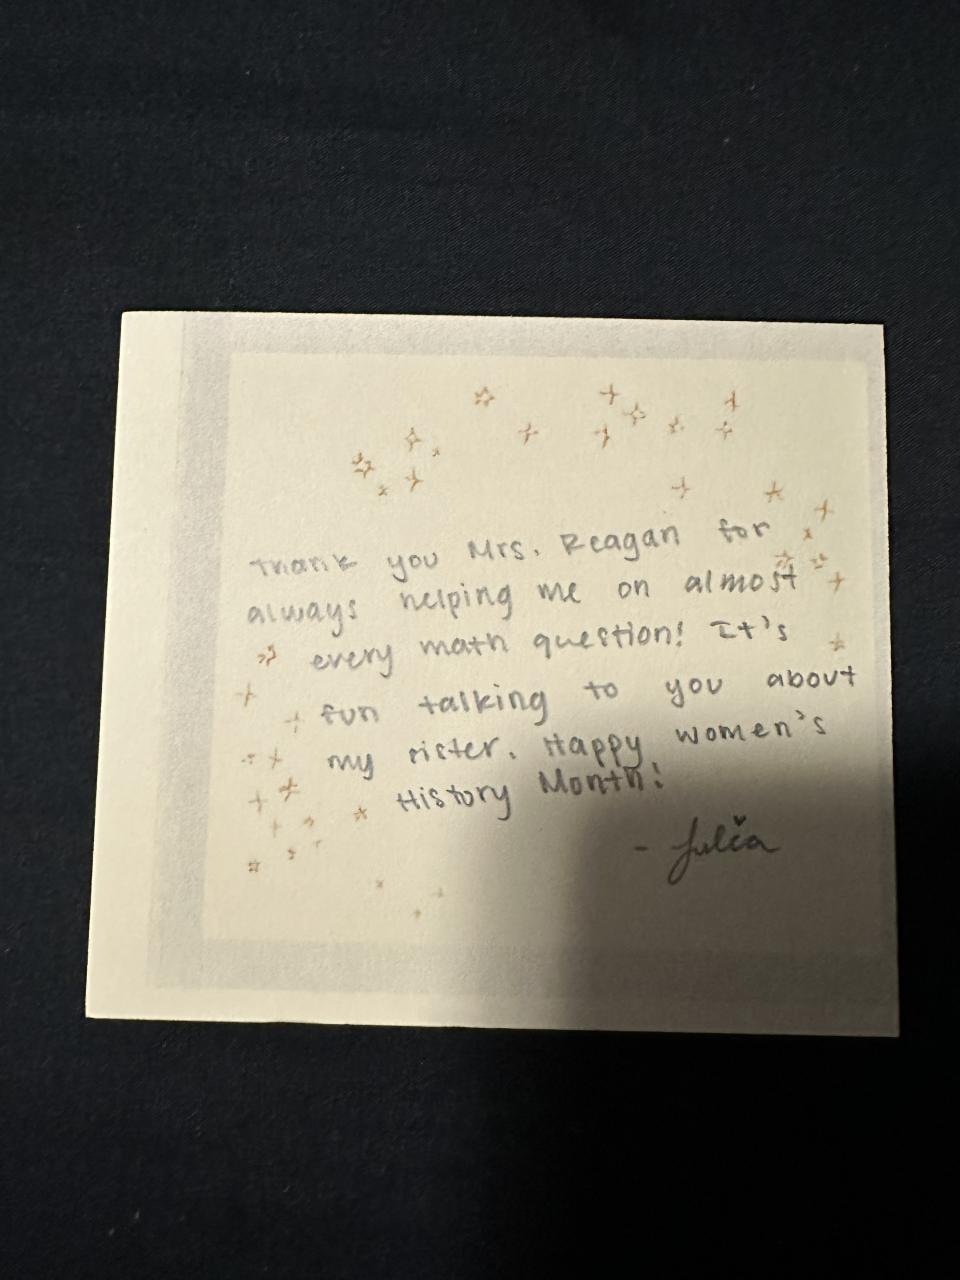 Thank you Mrs. Reagan for
always helping me on almost
every math question! It's
fun talking to you about
my sister. Happy women's
History Month!
- Julia